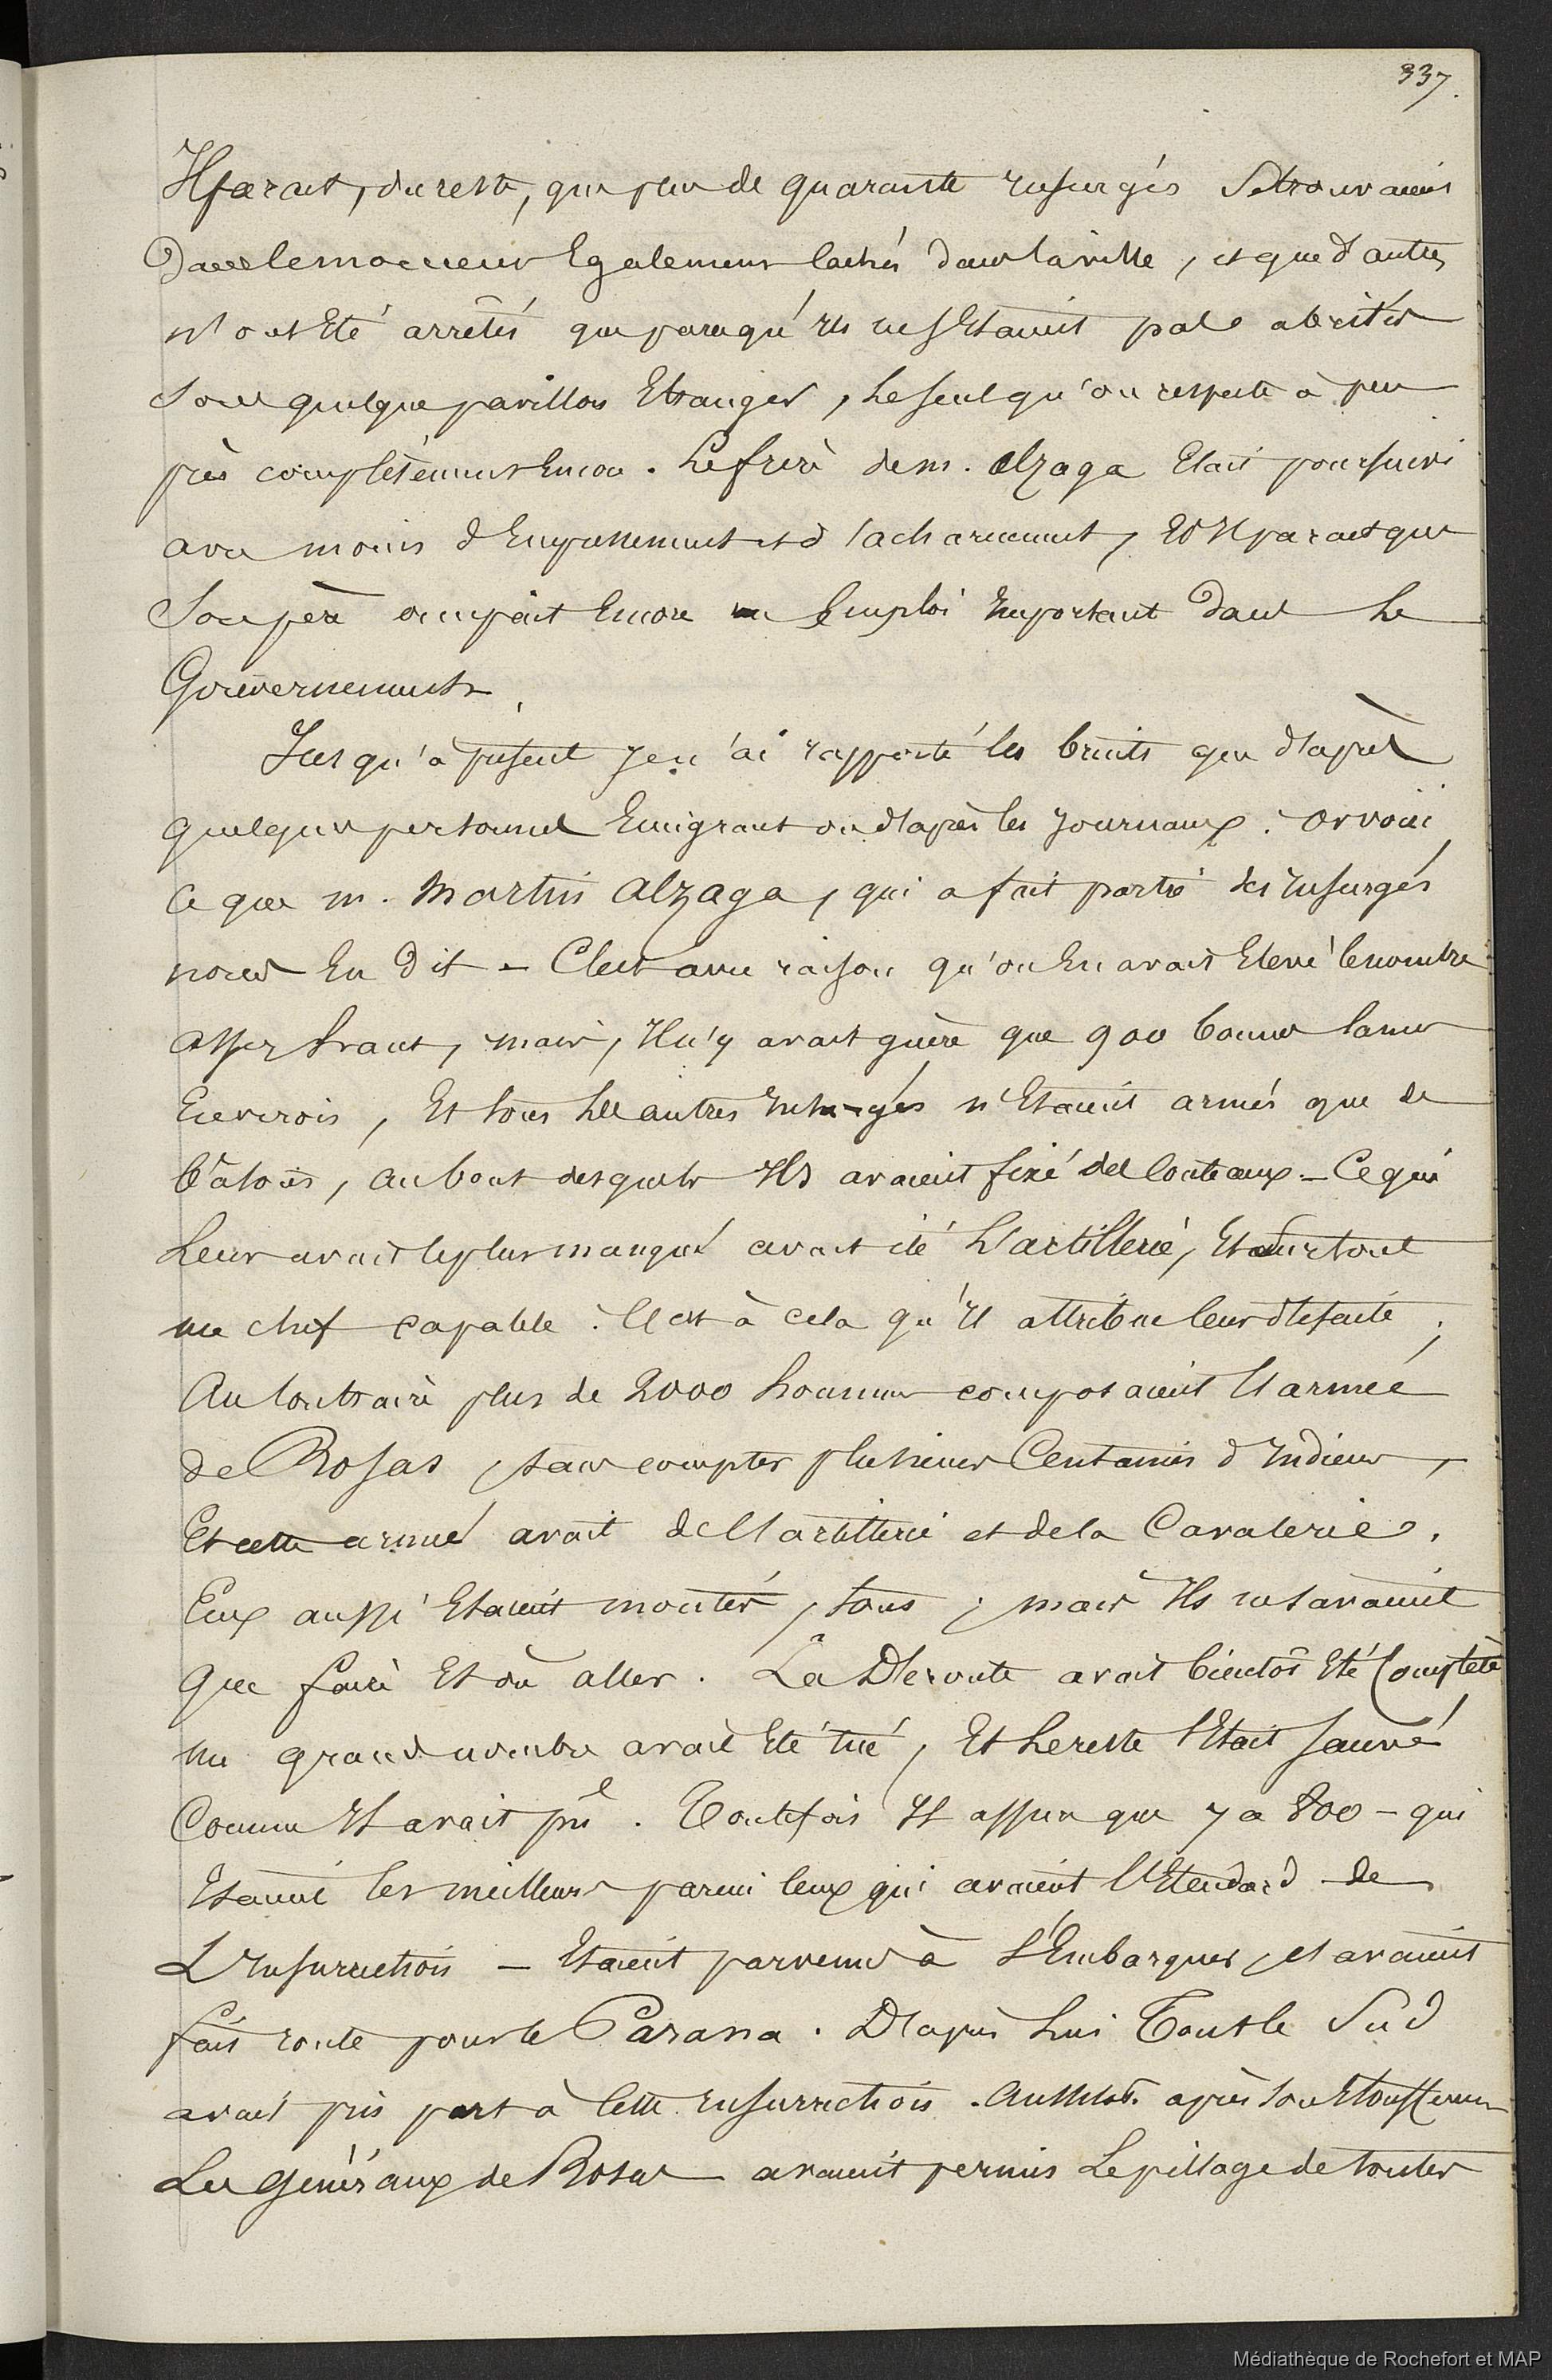 337.
Il parait, du reste, que plus de quarante insurgés se trouvaient
dans le moment Egalement cachés dans la ville, et que d'autres
n'ont Eté arrêtés que parcequ'ils ne s'Etaient pas abrités
sous quelque pavillon Etranger, le seul qu'on respecte à peu
près complétement Encor. Le frère de m. Alzaga Etait poursuivi
avec moins d'Empressement et d'acharnement, Et Il parait que
Son père occupait Encore un Emploi Important dans le
Gouvernement.
Jusqu'à présent Je n'ai rapporté les bruits que d'après
quelques personnes Emigrant ou d'après les Journaux. Or voici
ce que m. Martin Alzaga, qui a fait partie des Insurgés
nous En dit - C'est avec raison qu'on En avait Elevé le nombre
assez haut, mais, Il n'y avait guère que 900 bonnes lances
Environ, Et tous les autres Insurgés n'Etaient armés que de
bâtons, au bout desquels Ils avaient fixé des Couteaux - Ce qui
Leur avait le plus manqué avait été L'artillerie, Et surtout
un chef capable. C'est à cela qu'Il attribue leur défaite;
Au Contraire plus de 2000 hommes composaient l'armée
de Rosas, sans compter plusieurs Centaines d'Indiens,
Et cette armée avait de l'artillerie et de la Cavalerie.
Eux aussi Etaient montés, tous; mais Ils ne savaient
que faire Et où aller. La Déroute avait bientôt Eté Complète
un grand nombre avait Eté tué, Et le reste s'Etait sauvé
Comme Il avait pû. Toutefois Il assure que y a 800 - qui
Etaient les meilleurs parmi Ceux qui avaient l'Etendard de
L'Insurrection - Etaient parvenus à s'Embarquer, et avaient
fait route pour le Parana. D'après Lui Tout le Sud
avait pris part à Cette Insurrection. Aussitôt après son Etouffement
Les Généraux de Rosas avaient permis Le pillage de toutes
Médiathèque de Rochefort et MAP